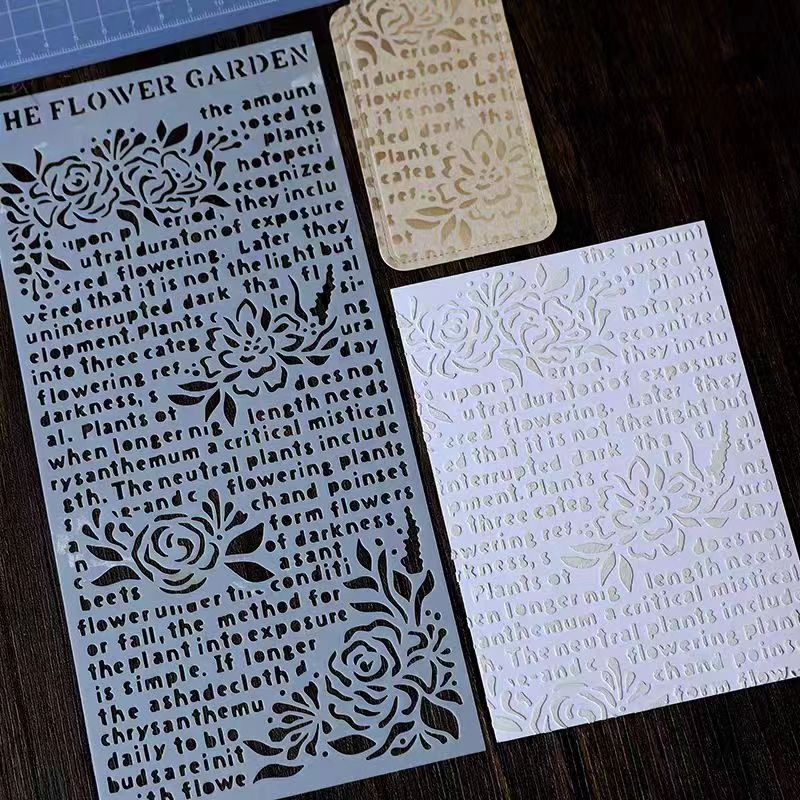 HE FLOWER GARDEN
the amount
osed to
plants
hotoperi
ecognized
eriod, they inclu
upon p
utral duraton of exposure
ered flowering. Later they
vered that it is not the light but
uninterrupted dark tha fl al
elopment. Plants c le si-
into three categ ura
flowering res. ing
day
darkness, s does not
al. Plants ot length needs
when longer nig a critical mistical
rysanthemum neutral plants include
gth. The flowering plants
s e-and c chand poinset
n form flowers
c of darkness,
asant
beets
flower under the conditi
or fall, the method for
the plant into exposure
is simple. If longer
the ashadecloth d
chrysanthemu
daily to blo
buds are init
with flowe
eriod, the
l duraton of ex
flowering. Late
it is not the l
ted dark tha
Plants
categ
of
the amount
osed to
plants
hotoperi
ecognized
upon p eriod, they inclu
utral duraton of exposure
ered flowering. Later they
ed that it is not the light but
interrupted dark tha fl al
pment. Plants c le si-
three categ ura
wering res. ing
day
kness, does not
Plants ot length needs
en longer nig a critical mistical
anthemum neutral plants include
. The flowering plant
e-and c chand poinse
form flowe